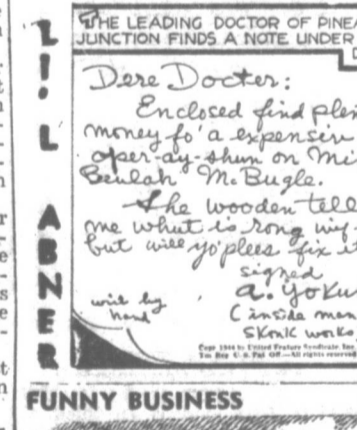 LI'L ABNER
THE LEADING DOCTOR OF PINE
JUNCTION FINDS A NOTE UNDER
Dere Docter:
Enclosed find plen
money fo' a expensiv
oper-ay-shun on Mi
Beulah M. Bugle.
She wooden tell
me whut is rong wif
but will yo' plees fix it
signed
a. yoku
(inside man
skonk works
writ by
hand
Copr 1944 by United Feature Syndicate, Inc.
Tm Reg U. S. Pat Off.—All rights reserved
FUNNY BUSINESS